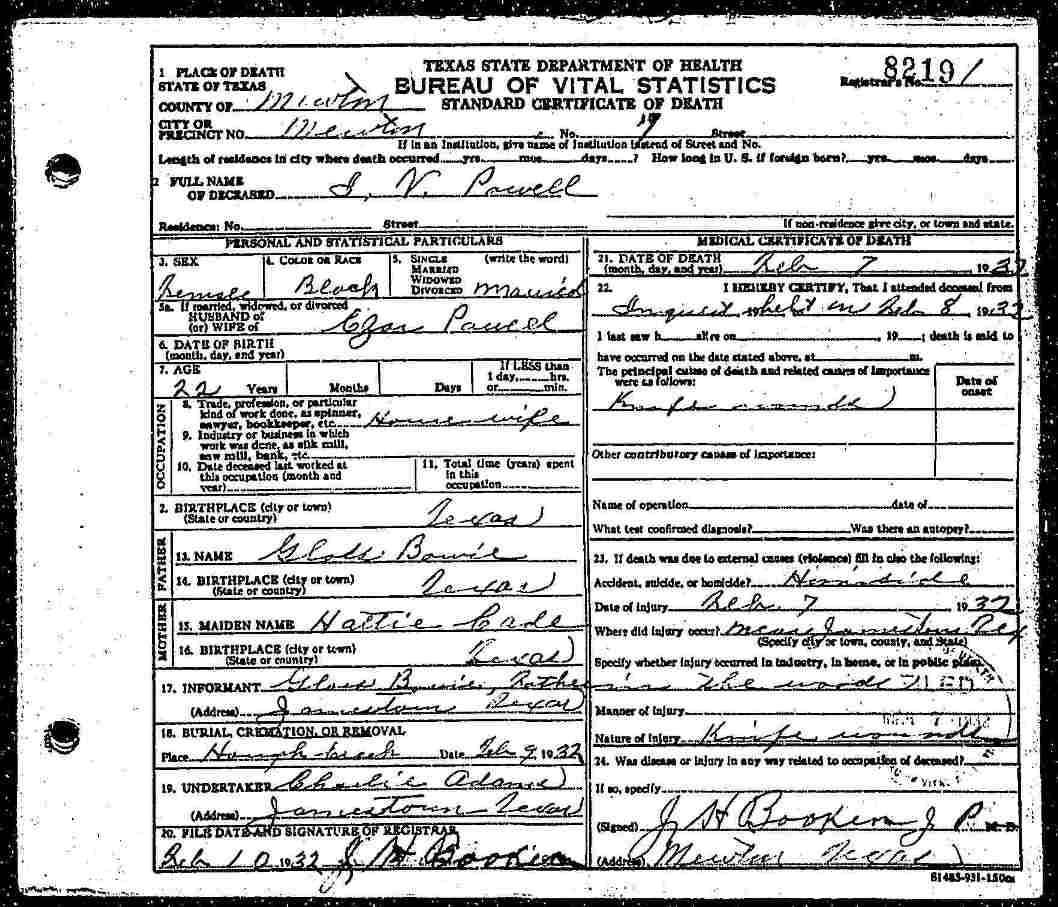 TEXAS STATE DEPARTMENT OF HEALTH
BUREAU OF VITAL STATISTICS
STANDARD CERTIFICATE OF DEATH
8219 1
Registrar's No.
1 PLACE OF DEATH
STATE OF TEXAS
COUNTY OF Newton
CITY OR
PRECINCT NO. Newton No. Street
If in an Institution, give name of Institution instead of Street and No.
Length of residence in city where death occurred yrs. mos. days ? How long in U. S. if foreign born? yrs. mos. days
2 FULL NAME
OF DECEASED I. V. Powell
Residence: No. Street
If non-residence give city, or town and state.
PERSONAL AND STATISTICAL PARTICULARS
3. SEX
Female
4. COLOR OR RACE
Black
5. SINGLE
MARRIED
WIDOWED
DIVORCED
(write the word)
Married
5a. If married, widowed, or divorced
HUSBAND OF
(or) WIFE OF Powell
6. DATE OF BIRTH
(month, day, and year)
7. AGE
22 Years Months Days
If LESS than
1 day, hrs.
or min.
OCCUPATION
8. Trade, profession, or particular
kind of work done, as spinner,
sawyer, bookkeeper, etc. House wife
9. Industry or business in which
work was done, as silk mill,
saw mill, bank, etc.
10. Date deceased last worked at
this occupation (month and
year)
11. Total time (years) spent
in this
occupation
2. BIRTHPLACE (city or town)
(State or country) Texas
FATHER
13. NAME Bowie
14. BIRTHPLACE (city or town)
(State or country) Texas
MOTHER
15. MAIDEN NAME Hattie
16. BIRTHPLACE (city or town)
(State or country) Texas
17. INFORMANT Bowie, Father
(Address) Jamestown Texas
18. BURIAL, CREMATION, OR REMOVAL
Place Date Feb 9 1932
19. UNDERTAKER Charlie Adams
(Address) Jamestown Texas
20. FILE DATE AND SIGNATURE OF REGISTRAR
Feb 10 1932 J. H. Booker
MEDICAL CERTIFICATE OF DEATH
21. DATE OF DEATH
(month, day, and year) Feb 7 1932
22. I HEREBY CERTIFY, That I attended deceased from
Inquest held on Feb 8 1932
I last saw h alive on , 19 ; death is said to
have occurred on the date stated above, at m.
The principal cause of death and related causes of importance
were as follows:
Date of
onset
Knife wounds
Other contributory causes of importance:
Name of operation date of
What test confirmed diagnosis? Was there an autopsy?
23. If death was due to external causes (violence) fill in also the following:
Accident, suicide, or homicide? Homicide
Date of injury Feb. 7 1932
Where did injury occur? near Jamestown Tex
(Specify city or town, county, and State)
Specify whether injury occurred in industry, in home, or in public place.
in the woods
Manner of injury
Nature of injury Knife wounds
24. Was disease or injury in any way related to occupation of deceased?
If so, specify
(Signed) J H Booker J P M. D.
(Address) Newton Texas